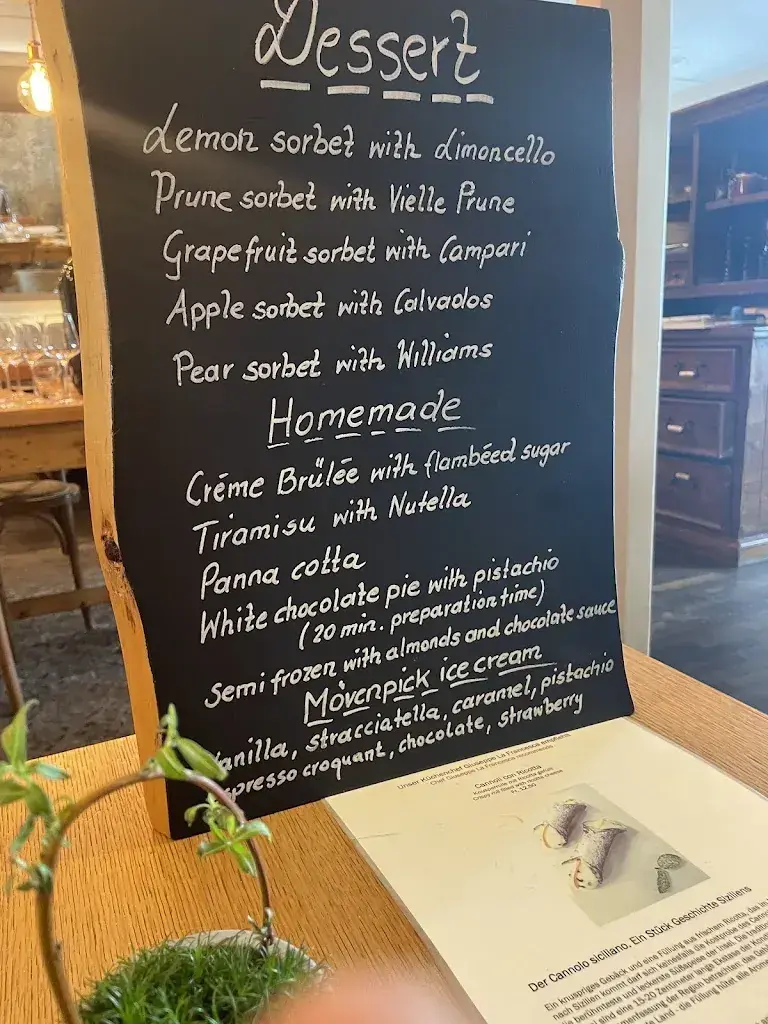 Dessert
Lemon sorbet with Limoncello
Prune sorbet with Vielle Prune
Grapefruit sorbet with Campari
Apple sorbet with Calvados
Pear sorbet with Williams
Homemade
Créme Brûlée with flambéed sugar
Tiramisu with Nutella
Panna cotta
White chocolate pie with pistachio
(20 min. preparation time)
Semi frozen with almonds and chocolate sauce
Mövenpick ice cream
Vanilla, stracciatella, caramel, pistachio
espresso croquant, chocolate, strawberry
Unser Küchenchef Giuseppe La Francesca empfiehlt
Chef Giuseppe La Francesca recommends
Cannoli con Ricotta
Knusperrolle mit Ricotta gefüllt
Crispy roll filled with ricotta cheese
Fr. 12.50
Der Cannolo siciliano. Ein Stück Geschichte Siziliens
Ein knuspriges Gebäck und eine Füllung aus frischem Ricotta, das
nach Sizilien kommt darf sich keinesfalls die Kostprobe des
berühmteste und leckerste Süßspeise der Insel. Die
sind eine 15-20 Zentimeter lange Ekstase der
der Region betrachten: das
Land - die Füllung hüllt alle